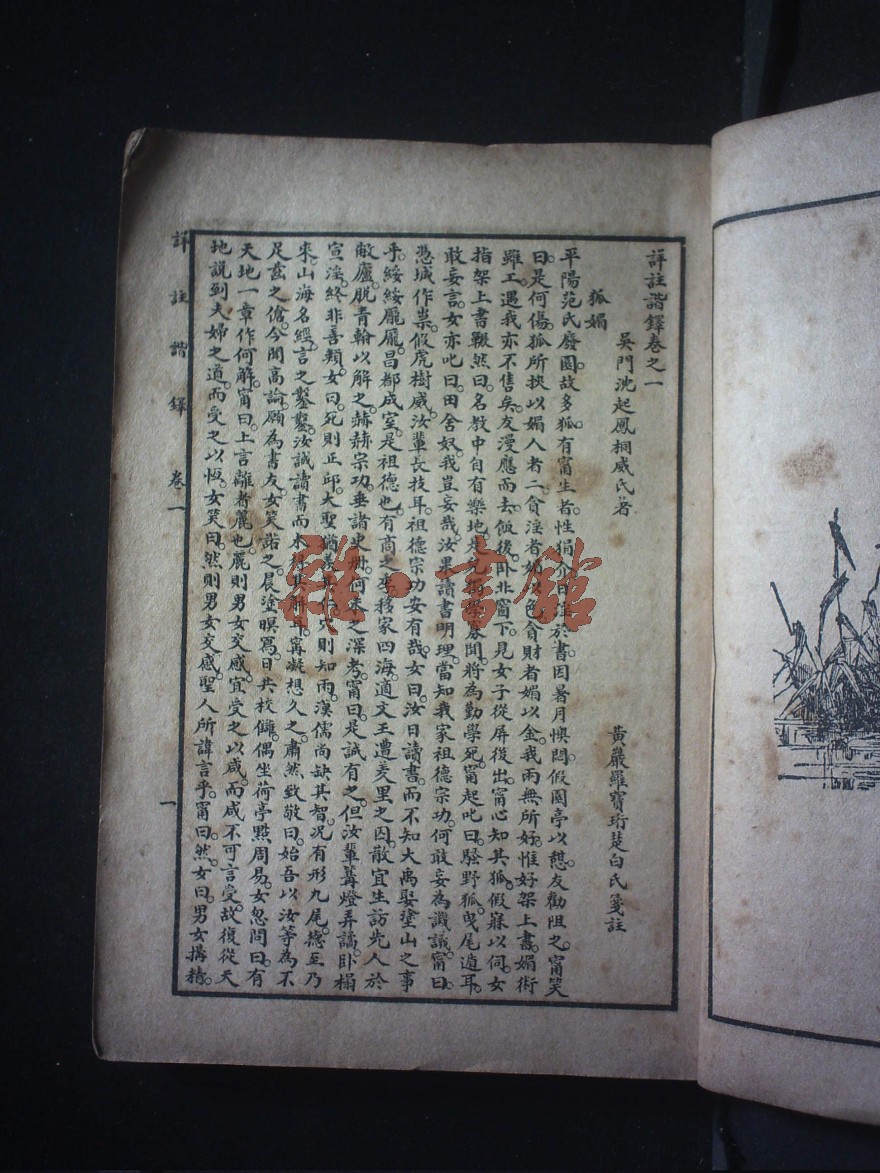 評註諧鐸卷之一
吳門沈起鳳桐威氏著
黃巖羅寶珩楚白氏箋註
狐媚
平陽范氏廢園。故多狐。有甯生者。性狷介。日誦於書。因暑月懊悶。假園亭以憩。友勸阻之。甯笑
曰。是何傷。狐所挾以媚人者二。貪淫者媚以色。貪財者媚以金。我兩無所好。惟好架上書。媚術
雖工。遇我亦不售矣。友漫應而去。飯後。卧北窗下。見女子從屏後出。甯心知其狐。假寐以伺。女
指架上書囅然曰。名教中自有樂地。是兄孤陋寡聞。將為勤學死。甯起叱曰。騷野狐。曳尾遁耳。
敢妄言。女亦叱曰。田舍奴。我豈妄哉。汝果讀書明理。當知我家祖德宗功。何敢妄為譏議。甯曰。
憑城作祟。假虎樹威。汝輩長技耳。祖德宗功安有哉。女曰。汝日讀書。而不知大禹娶塗山之事
乎。綏綏龐龐。昌都成室。是祖德也。有商之季。我家四海。適文王遭羑里之囚。散宜生訪先人於
敝廬。脫青翰以解之。赫赫宗功。垂諸史冊。何未之深考。甯曰。是誠有之。但汝輩篝燈弄譎。卧榻
宣淫。終非善類。女曰。死則正邱。大聖猶羨其仁。穴則知雨。漢儒尚缺其智。况有形九尾。德至乃
來。山海名經。言之鑿鑿。汝誠讀書而未得其解耳。甯凝想久之。肅然致敬曰。始吾以汝等為不
足齒之傖。今聞高論。願為書友。女笑諾之。晨塗暝寫。日共校讎。偶坐荷亭。點周易。女忽問曰。有
天地一章作何解。甯曰。上言離者麗也。麗則男女交感。宜受之以咸。而咸不可言受。故復從天
地說到夫婦之道。而受之以恆。女笑曰。然則男女交感。聖人所諱言乎。甯曰。然。女曰。男女搆精。
評註諧鐸 卷一 一
雅·書館